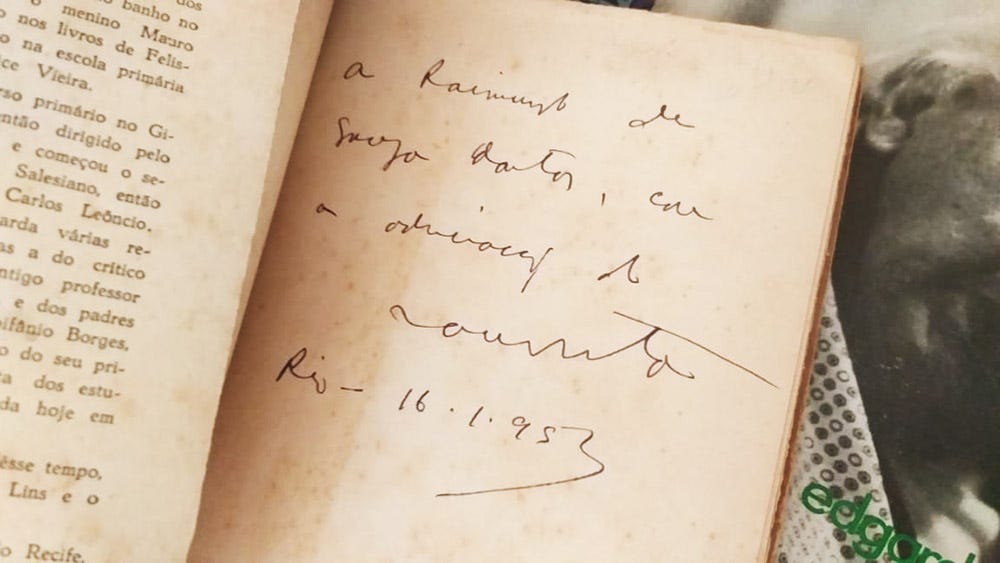 dos
banho no
menino Mauro
nos livros de Felis-
o na escola primária
ice Vieira.
rso primário no Gi-
então dirigido pelo
e começou o se-
Salesiano, então
Carlos Leôncio.
arda várias re-
as a do crítico
ntigo professor
e dos padres
pifânio Borges,
o do seu pri-
ta dos estu-
da hoje em
êsse tempo,
Lins e o
o Recife.
a Raimundo de
Souza Dantas, com
a admiração do
Rio - 16.1.953
edgard